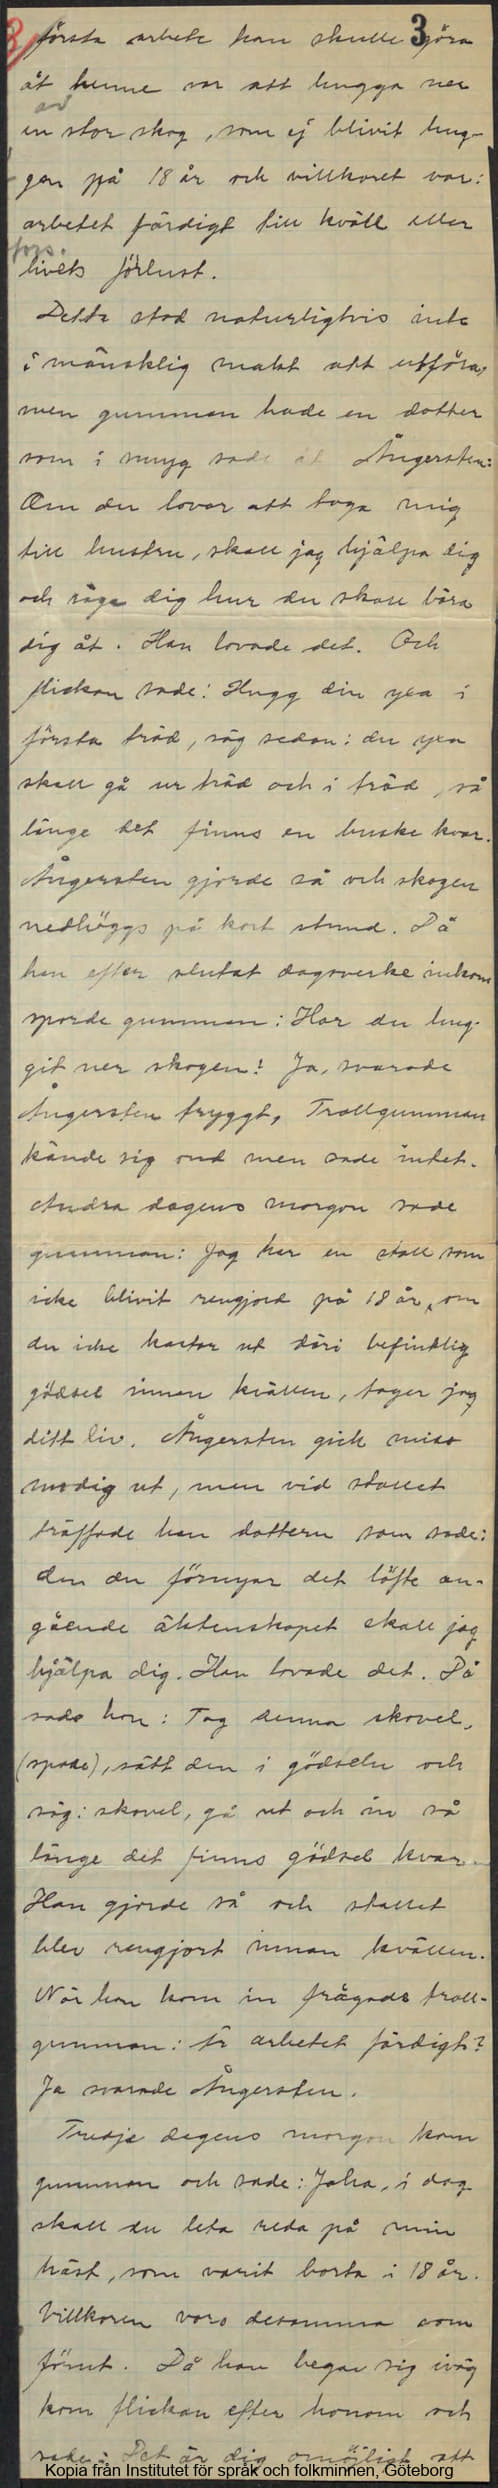 3
första arbete han skulle göra
åt henne var att hugga ner
av
en stor skog, som ej blivit hug-
gen på 18 år och villkoret var:
arbetet färdigt till kväll eller
livets förlust.
Detta stod naturligtvis inte
i mänsklig makt att utföra,
men gumman hade en dotter
som i smyg sade åt Ångersten:
Om du lovar att taga mig
till hustru, skall jag hjälpa dig
och säga dig hur du skall bära
dig åt. Han lovade det. Och
flickan sade: Hugg din yxa i
första träd, säg sedan: du yxa
skall gå ur träd och i träd, så
länge det finns en buske kvar.
Ångersten gjorde så och skogen
nedhöggs på kort stund. Då
han efter slutat dagsverke inkom
sporde gumman: Har du hug-
git ner skogen? Ja, svarade
Ångersten tryggt, Trollgumman
kände sig ond men sade intet.
Andra dagens morgon sade
gumman: Jag har en stall som
icke blivit rengjord på 18 år, om
du icke kastar ut däri befintlig
gödsel innan kvällen, tager jag
ditt liv. Ångersten gick miss
modig ut, men vid stallet
träffade han dottern som sade:
Om du förnyar det löfte an-
gående äktenskapet skall jag
hjälpa dig. Han lovade det. Då
sade hon: Tag denna skovel,
(spade), sätt den i gödseln och
säg: skovel, gå ut och in så
länge det finns gödsel kvar.
Han gjorde så och stallet
blev rengjort innan kvällen.
När han kom in frågade troll-
gumman: Är arbetet färdigt?
Ja svarade Ångersten.
Tredje dagens morgon kom
gumman och sade: Jaha, i dag
skall du leta reda på min
häst, som varit borta i 18 år.
Villkoren voro desamma som
förut. Då han begav sig iväg
kom flickan efter honom och
sade: Det är dig omöjligt att
Kopia från Institutet för språk och folkminnen, Göteborg